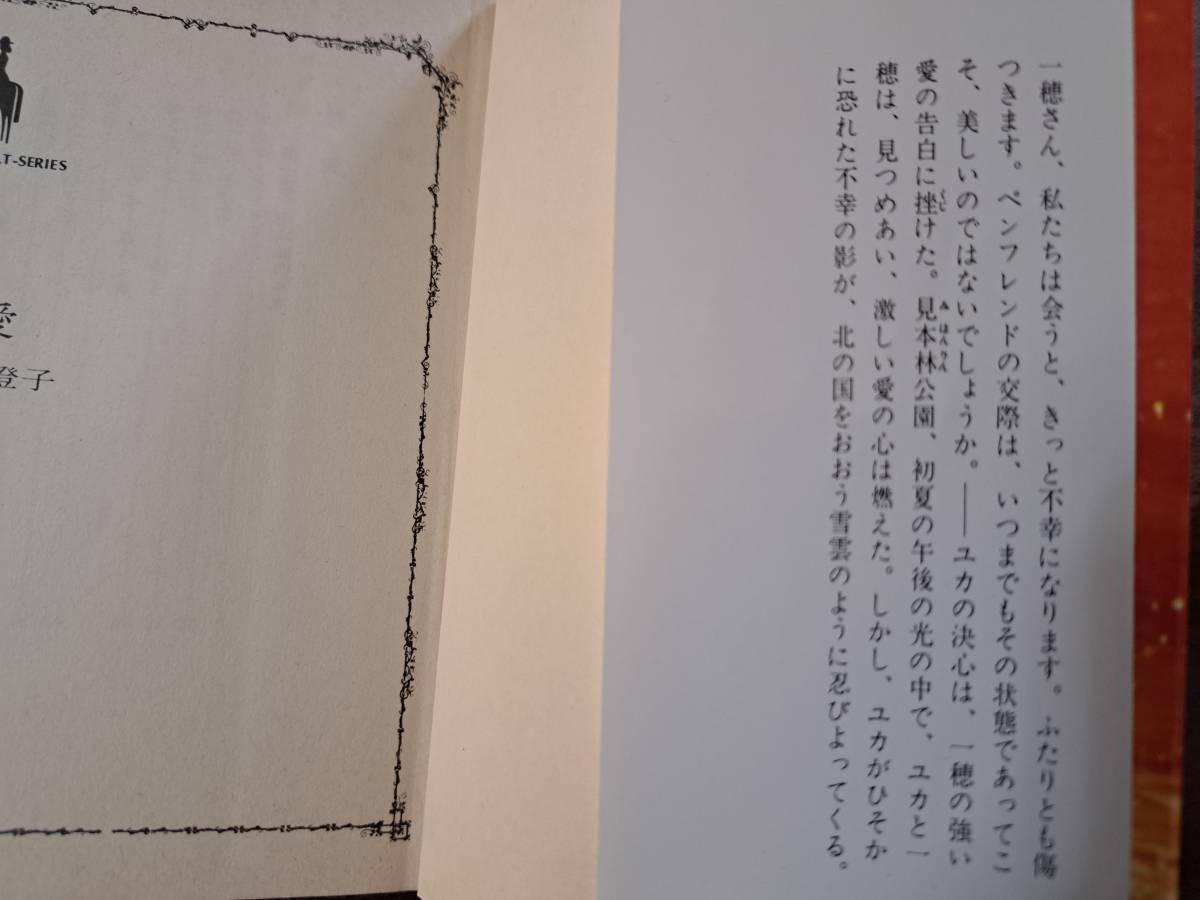 一穂さん、私たちは会うと、きっと不幸になります。ふたりとも傷
つきます。ペンフレンドの交際は、いつまでもその状態であってこ
そ、美しいのではないでしょうか。――ユカの決心は、一穂の強い
くじ みほんりん
愛の告白に挫けた。見本林公園、初夏の午後の光の中で、ユカと一
穂は、見つめあい、激しい愛の心は燃えた。しかし、ユカがひそか
に恐れた不幸の影が、北の国をおおう雪雲のように忍びよってくる。
LT-SERIES
愛
子